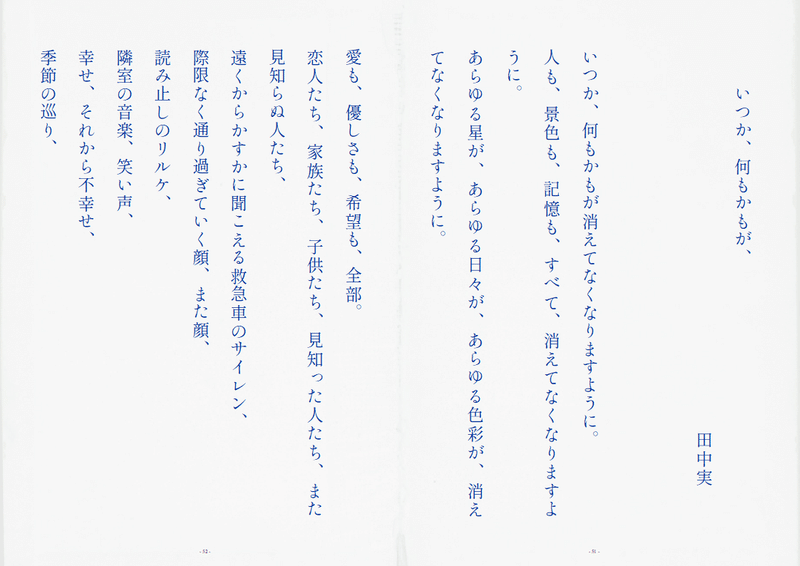 いつか、何もかもが、
田中実
いつか、何もかもが消えてなくなりますように。
人も、景色も、記憶も、すべて、消えてなくなりますよ
うに。
あらゆる星が、あらゆる日々が、あらゆる色彩が、消え
てなくなりますように。
- 31 -
愛も、優しさも、希望も、全部。
恋人たち、家族たち、子供たち、見知った人たち、また
見知らぬ人たち、
遠くからかすかに聞こえる救急車のサイレン、
際限なく通り過ぎていく顔、また顔、
読み止しのリルケ、
隣室の音楽、笑い声、
幸せ、それから不幸せ、
季節の巡り、
- 32 -